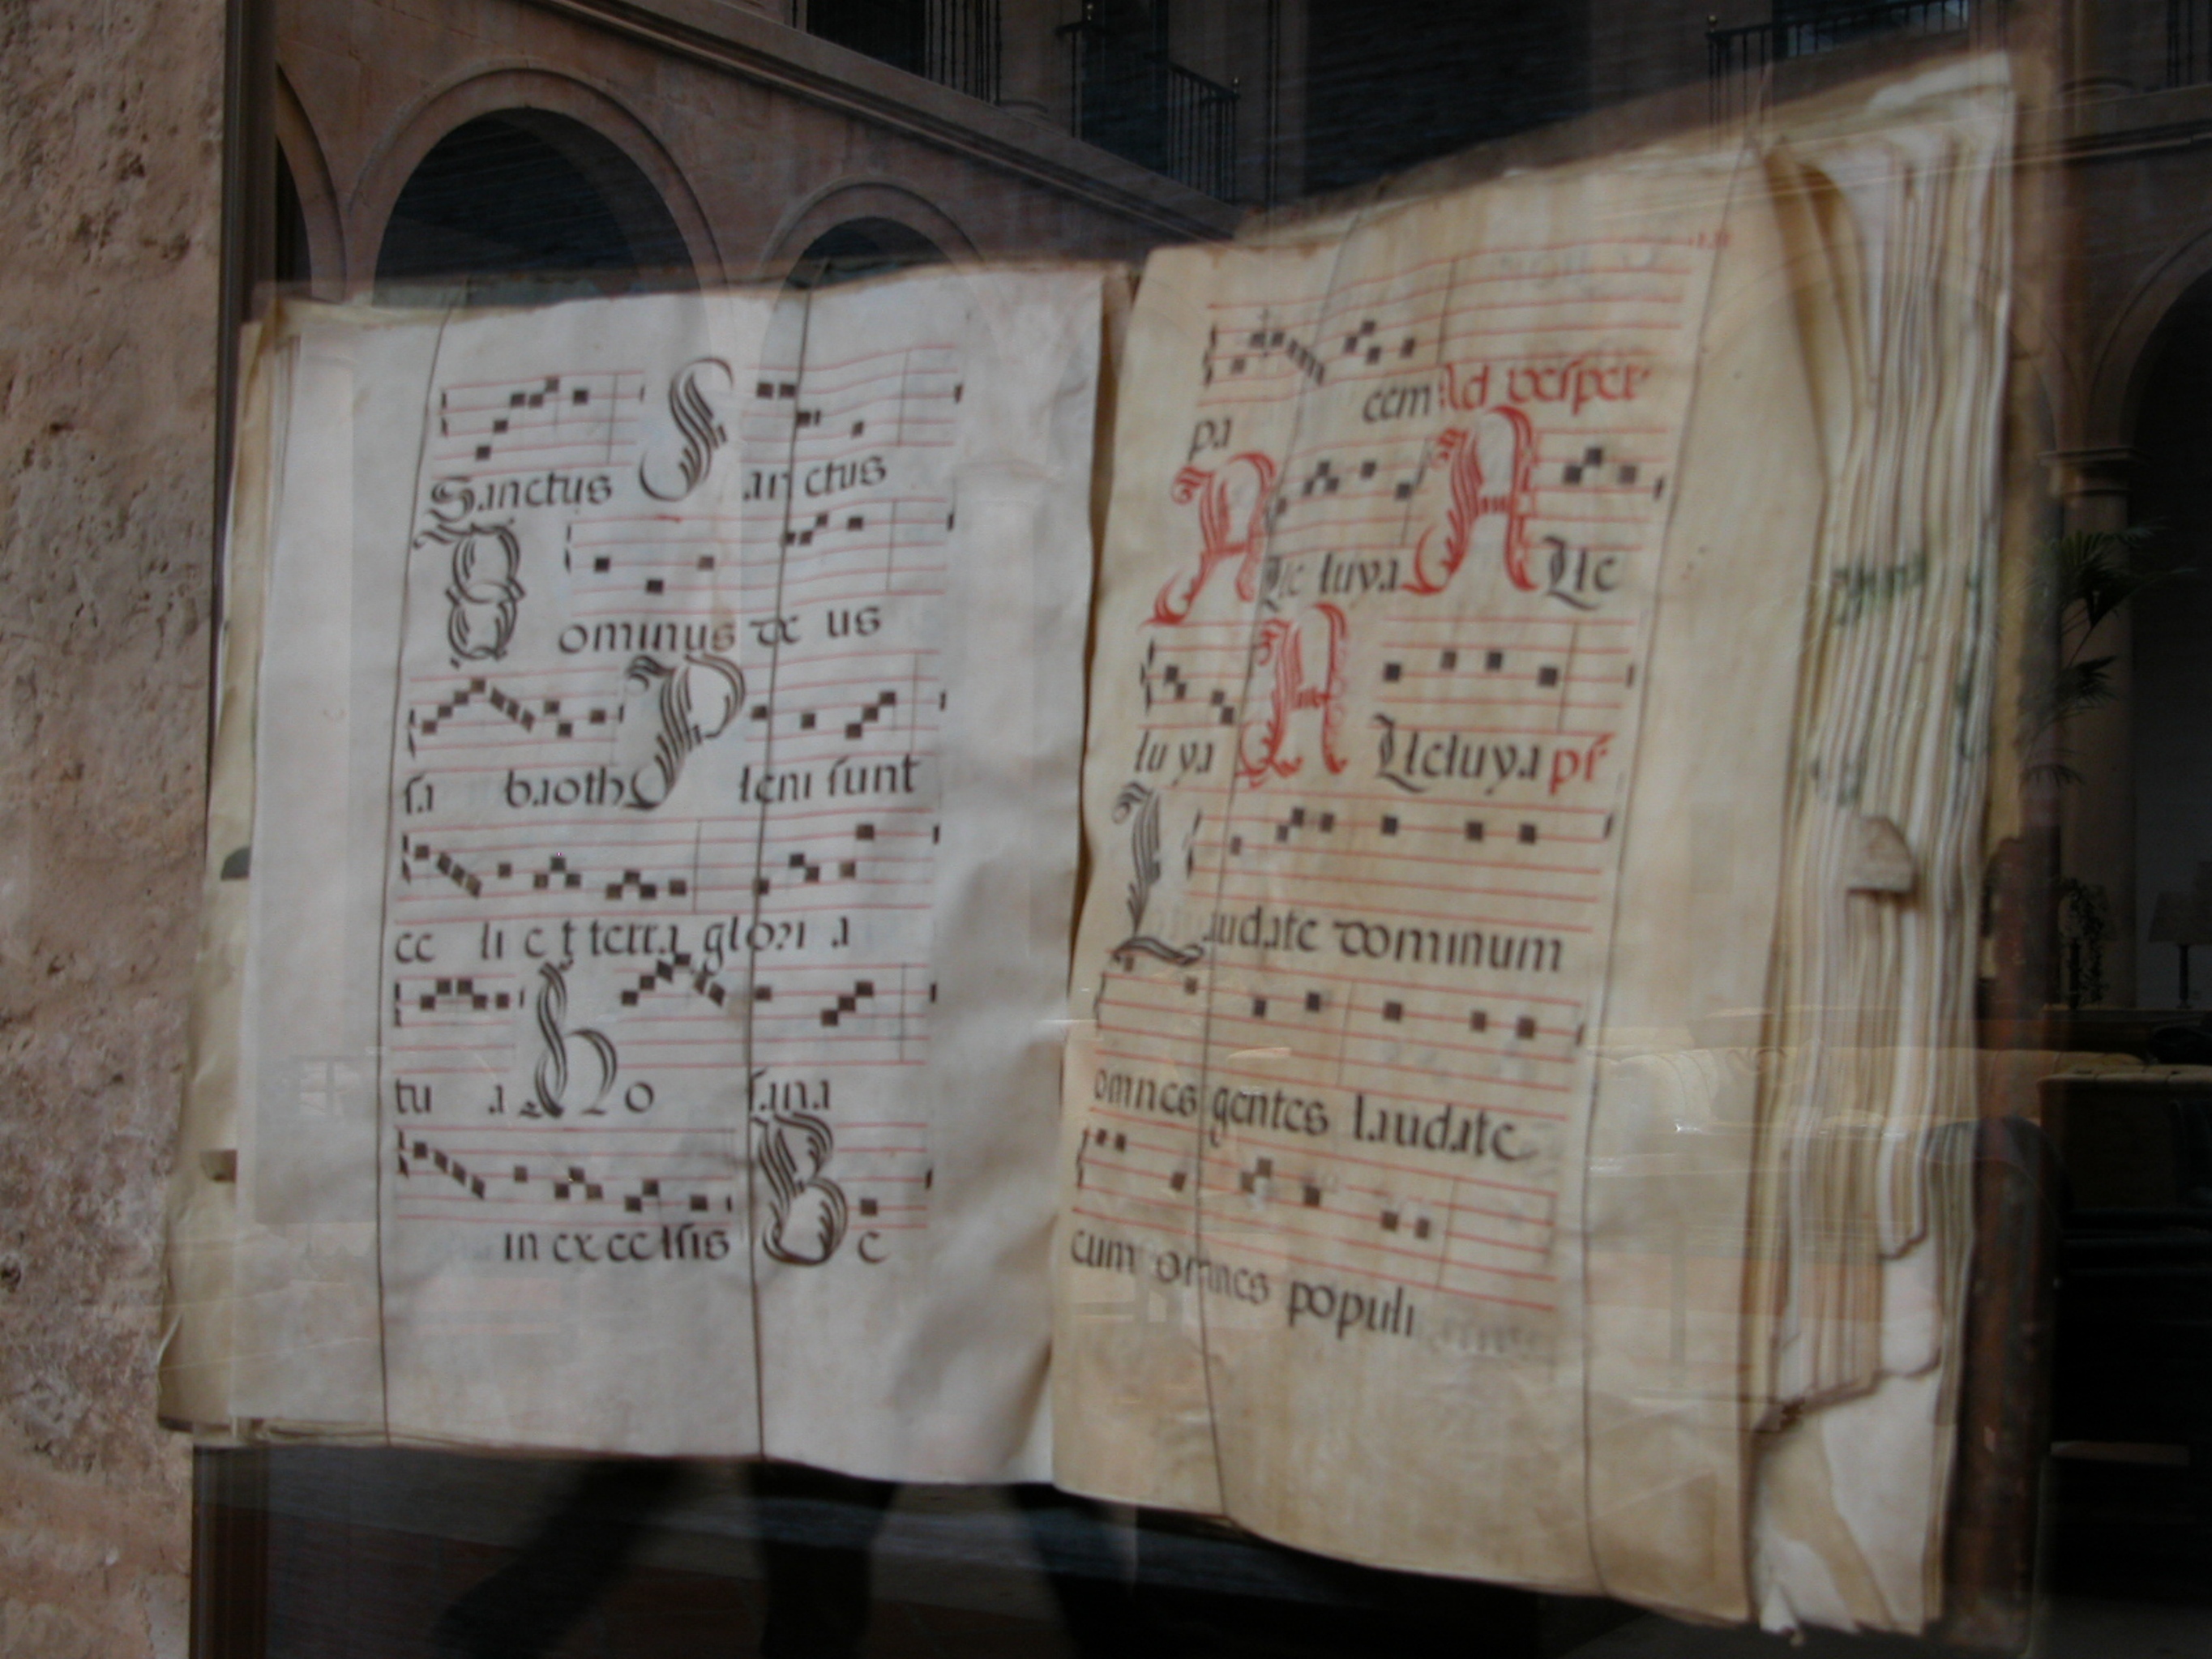 Sanctus Sanctus
Dominus de us
sa baoth Pleni sunt
ce li et terra glori a
tu a Ho sana
in ex celsis Be
pa cem Ad vesper
Alleluya Alle
luya Alleluya ps
Laudate dominum
omnes gentes laudate
eum omnes populi